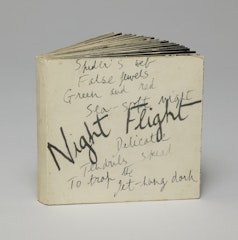 Spider's web
False jewels
Green and red
Sea-split night
Night Flight
Delicate
Tendrils spread
To trap the
jet-hung dark